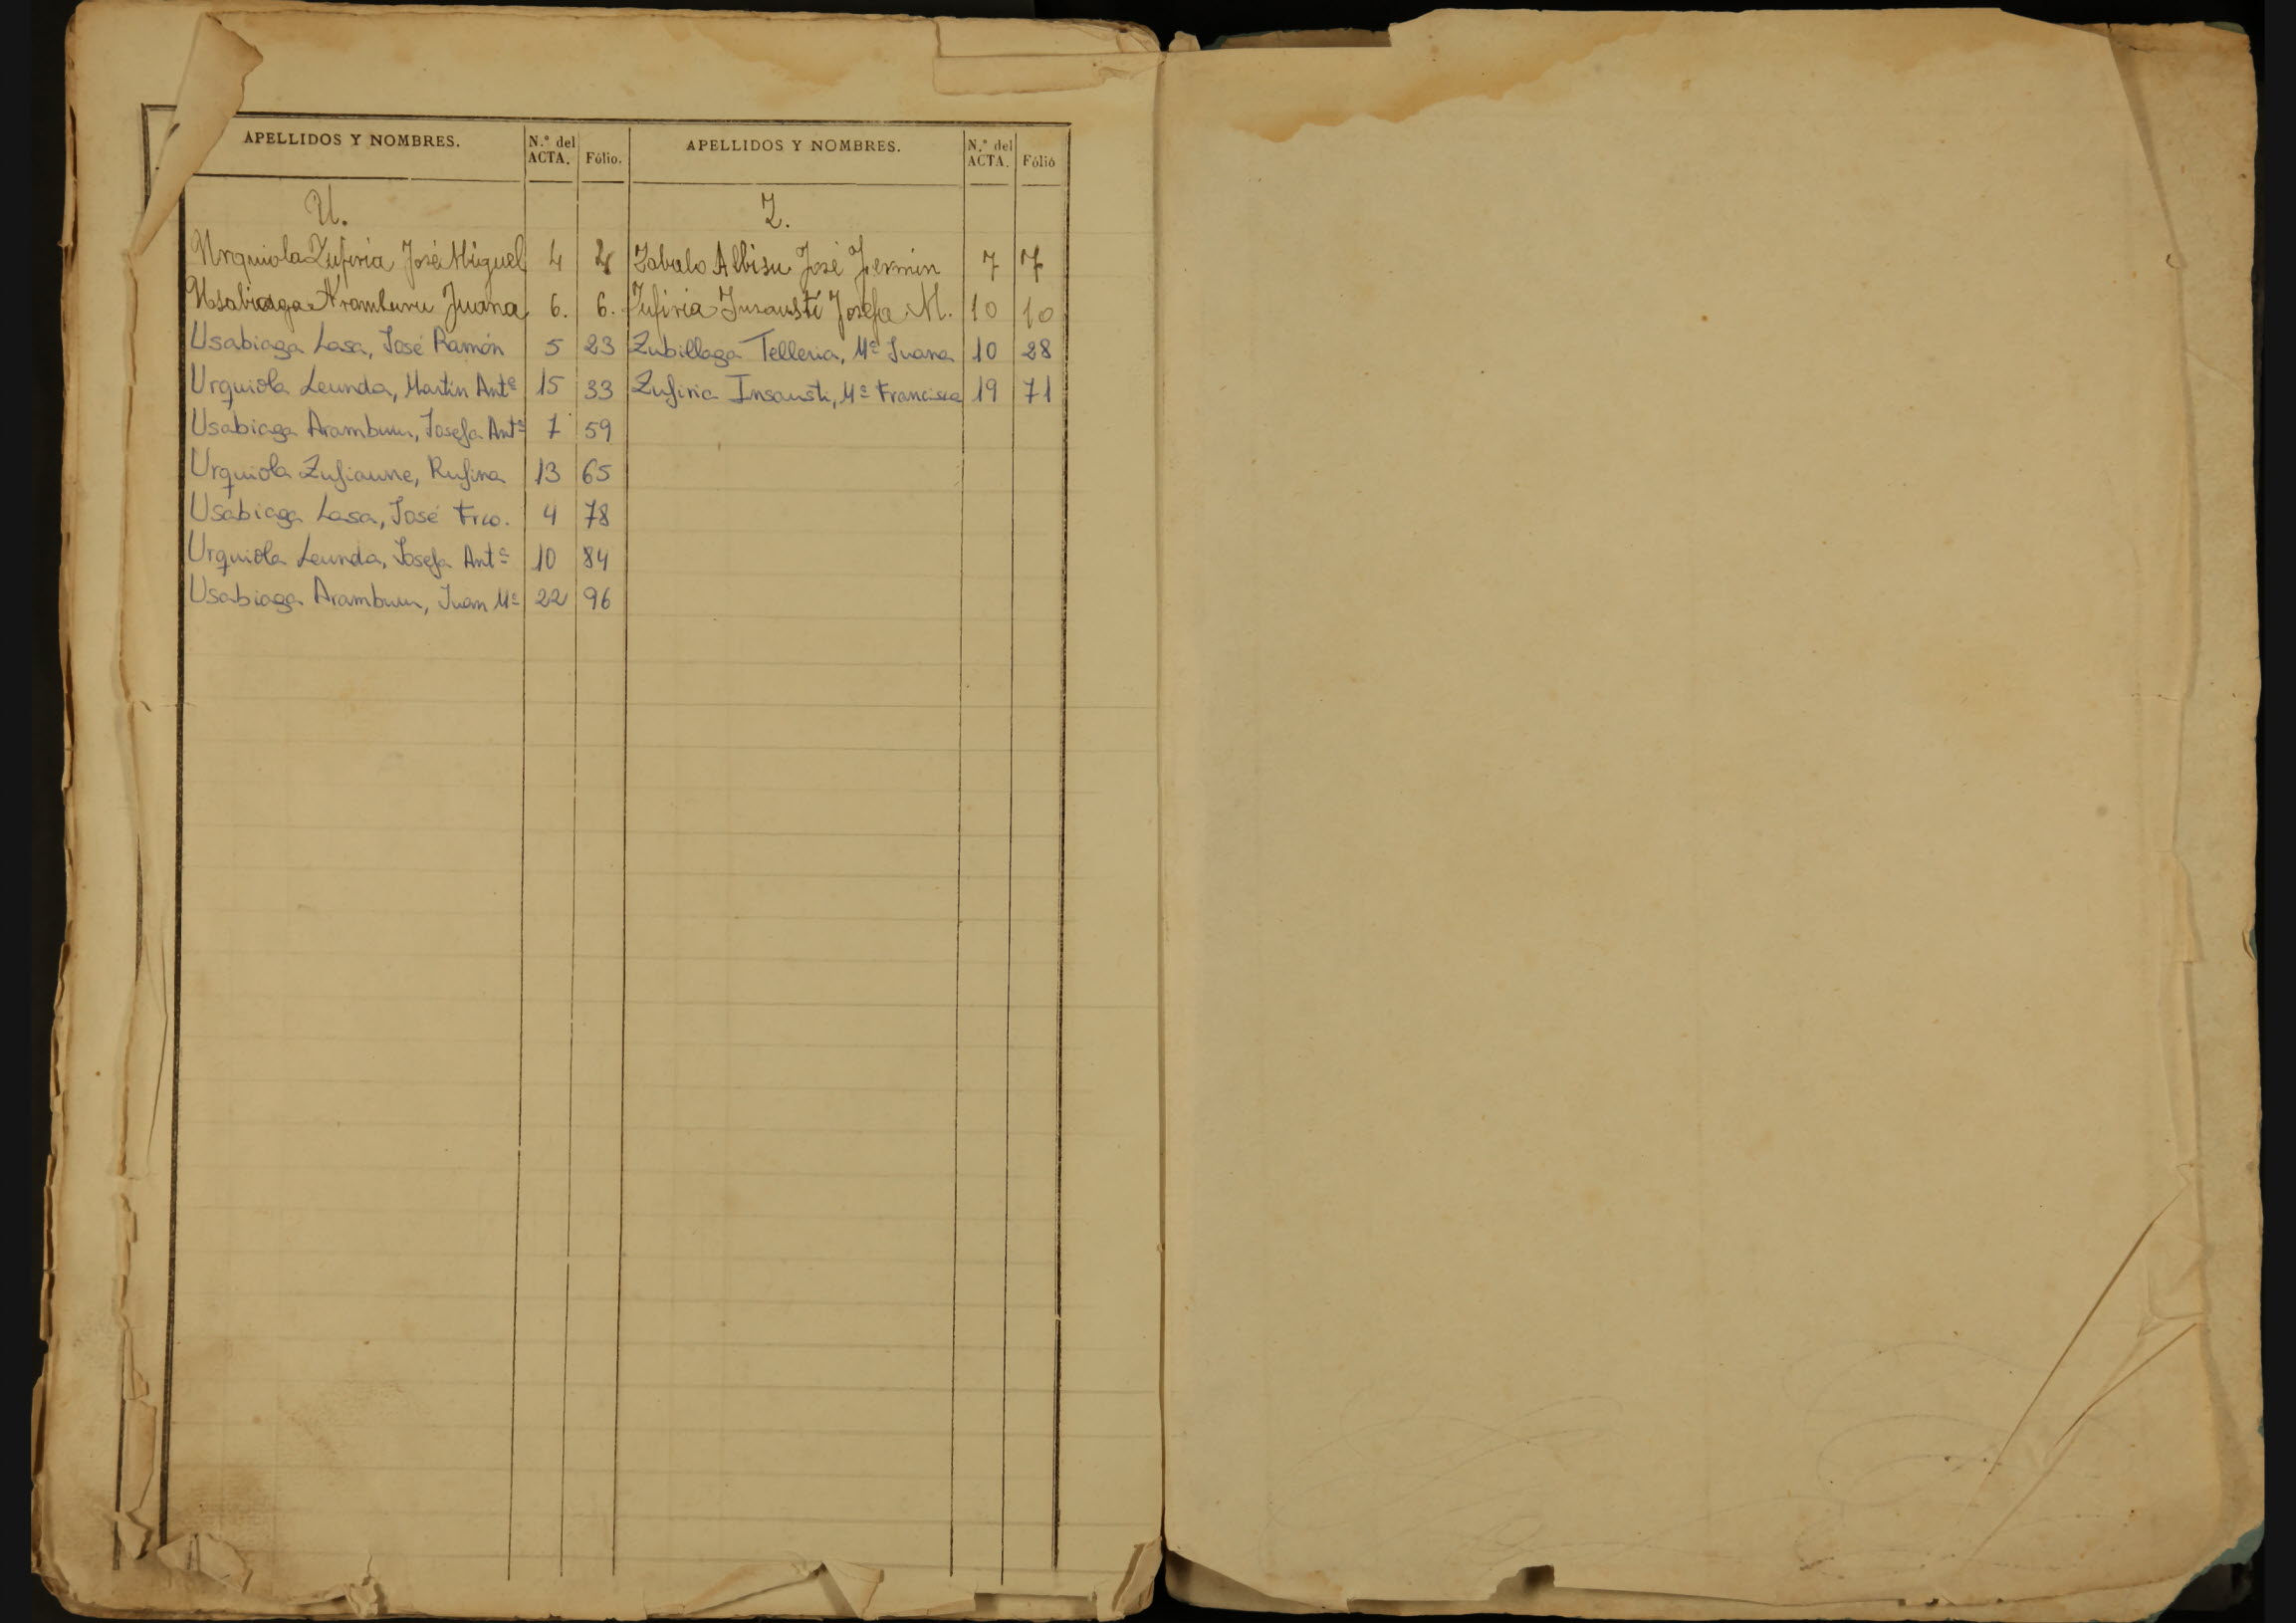 APELLIDOS Y NOMBRES. N.º del ACTA. Fólio.
U.
Urquiola Zufiria José Miguel 4 4
Usabiaga Aramburu Juana 6. 6.
Usabiaga Lasa, José Ramón 5 23
Urquiola Leunda, Martín Antº 15 33
Usabiaga Aramburu, Josefa Antª 7 59
Urquiola Zufiaurre, Rufina 13 65
Usabiaga Lasa, José Frco. 4 78
Urquiola Leunda, Josefa Antª 10 84
Usabiaga Aramburu, Juan Mª 22 96
APELLIDOS Y NOMBRES. N.º del ACTA. Fólio
Z.
Zabalo Albisu José Fermin 7 7
Zufiria Insausti Josefa M. 10 10
Zubillaga Telleria, Mª Juana 10 28
Zufiria Insausti, Mª Francisca 19 71